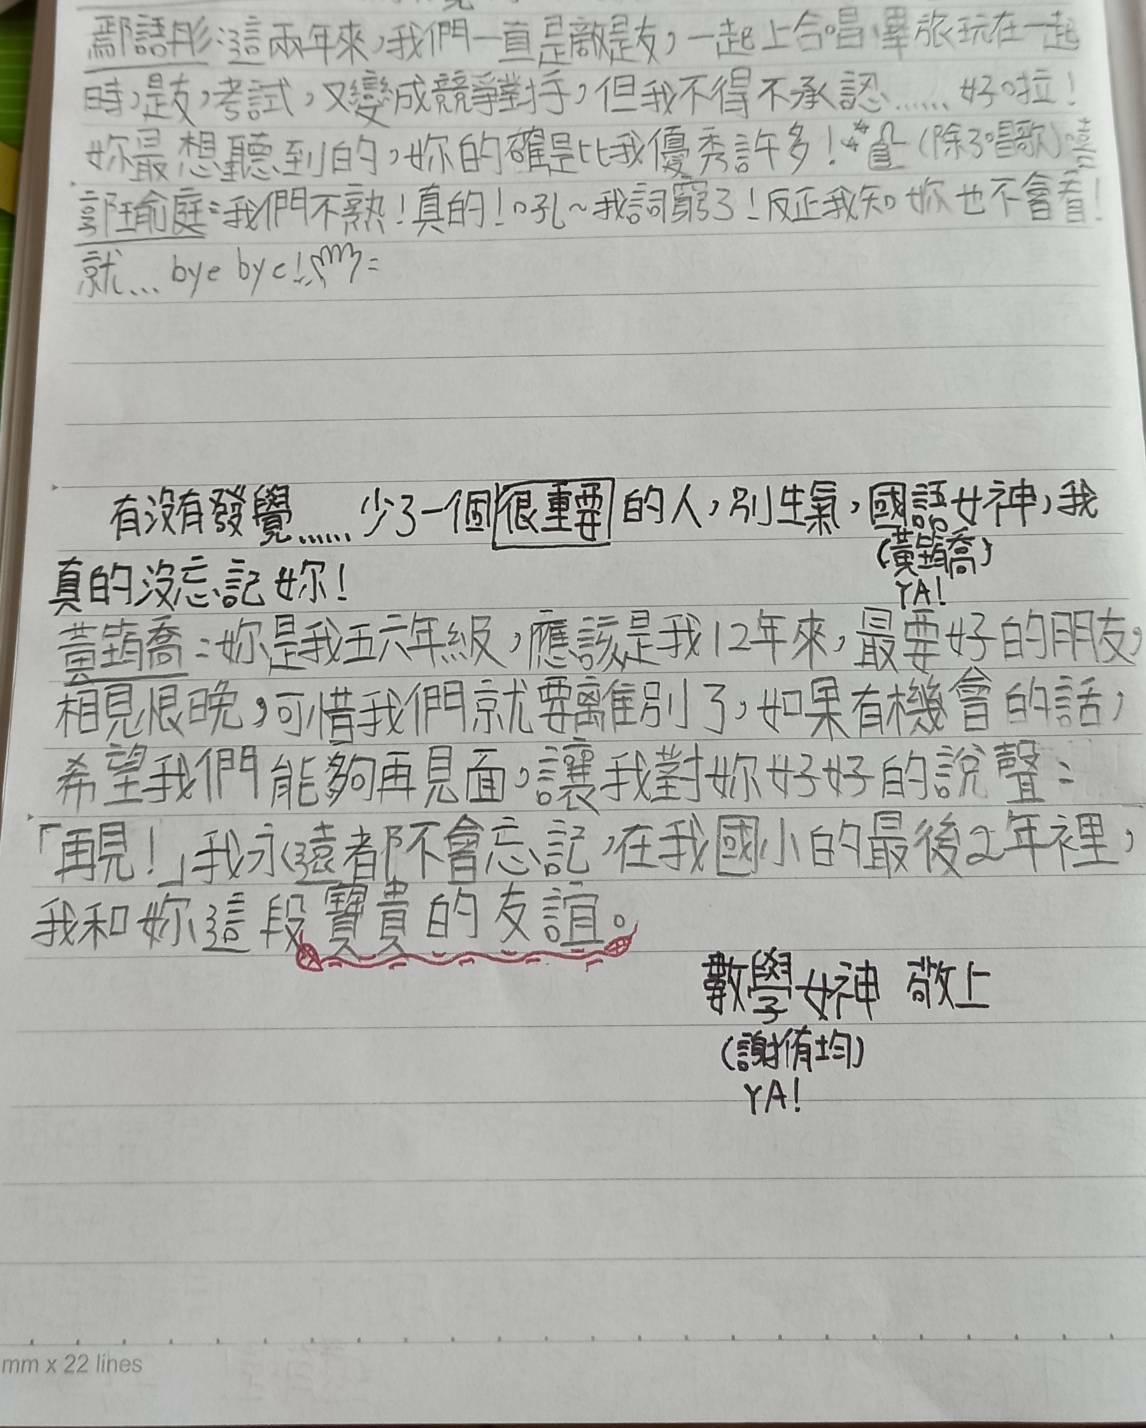 鄢語彤:這兩年來,我們一直是敵是友,一起上合唱、畢旅玩在一起
時,是友,考試,又變成競爭對手,但我不得不承認......好啦!
妳最想聽到的,妳的確是比我優秀許多!(除了唱歌)嘻
郭瑜庭:我們不熟!真的!吼~我詞窮了!反正我知妳也不會看!
就...bye bye!
有沒有發覺......少了一個很重要的人,別生氣,國語女神,我
(黃筠喬)
YA!
真的沒忘記妳!
黃筠喬:妳是我五六年級,應該是我12年來,最要好的朋友,
相見恨晚,可惜我們就要離別了,如果有機會的話,
希望我們能夠再見面,讓我對妳好好的說聲:
「再見!」我永遠都不會忘記,在我國小的最後2年裡,
我和妳這段寶貴的友誼。
數學女神 敬上
(謝侑均)
YA!
mm x 22 lines